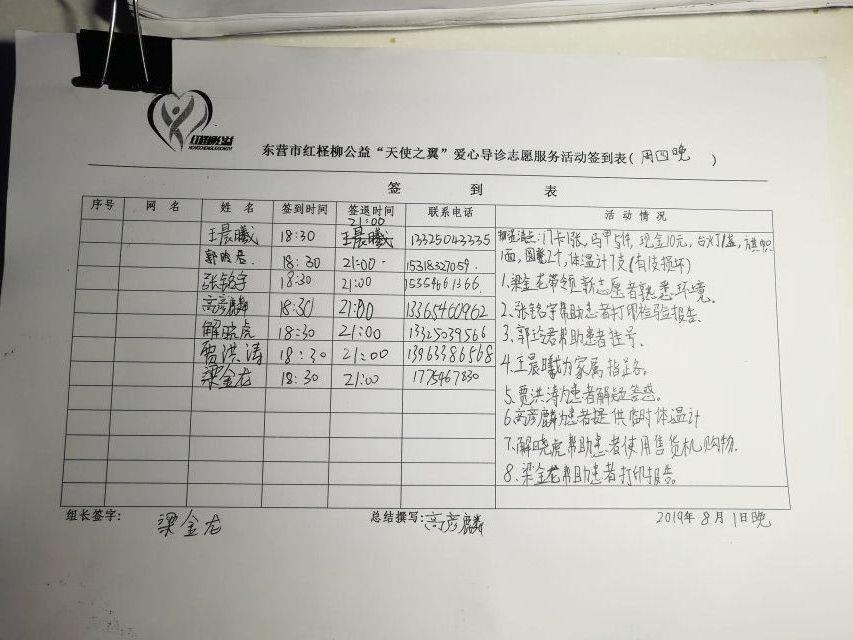 红柽柳公益
东营市红柽柳公益“天使之翼”爱心导诊志愿服务活动签到表(周四晚)
签 到 表
序号 网 名 姓 名 签到时间 签退时间 联系电话 活 动 情 况
21:00
王晨曦 18:30 王晨曦 13325043335
郭 君 18:30 21:00 15318327059
张铭宇 18:30 21:00
高彦麟 18:30 21:00 13365460962
解晓虎 18:30 21:00 13325039566
贾洪涛 18:30 21:00 13963386568
梁金龙 18:30 21:00 1775467830
清点:门卡1张,马甲5件,现金10元,台
1面,圆凳2个,体温计1支(有皮损坏)
1.梁金龙带领新志愿者熟悉环境。
2.张铭宇帮助患者打印检验报告。
3.郭玲君帮助患者挂号。
4.王晨曦为家属指路。
5.贾洪涛为患者解疑答惑。
6.高彦麟为患者提供临时体温计
7.解晓虎帮助患者使用售货机购物.
8.梁金龙帮助患者打印报告。
组长签字: 梁金龙 总结撰写:高彦麟 2019年8月1日晚